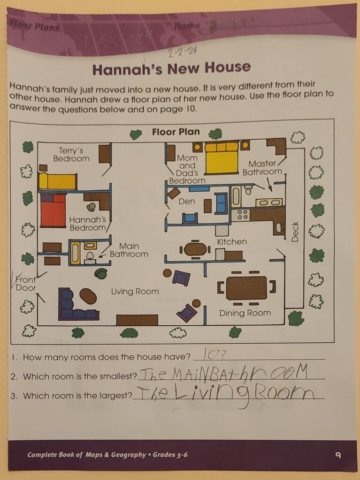 Floor Plans
Name
2-2-21
Hannah's New House
Hannah's family just moved into a new house. It is very different from their
other house. Hannah drew a floor plan of her new house. Use the floor plan to
answer the questions below and on page 10.
Floor Plan
Terry's
Bedroom
Mom
and
Dad's
Bedroom
Master
Bathroom
Den
Hannah's
Bedroom
Main
Bathroom
Kitchen
Deck
Front
Door
Living Room
Dining Room
1. How many rooms does the house have? 10?
2. Which room is the smallest? The MAiNBAthrooM
3. Which room is the largest? The Living Room
Complete Book of Maps & Geography • Grades 3-6
9